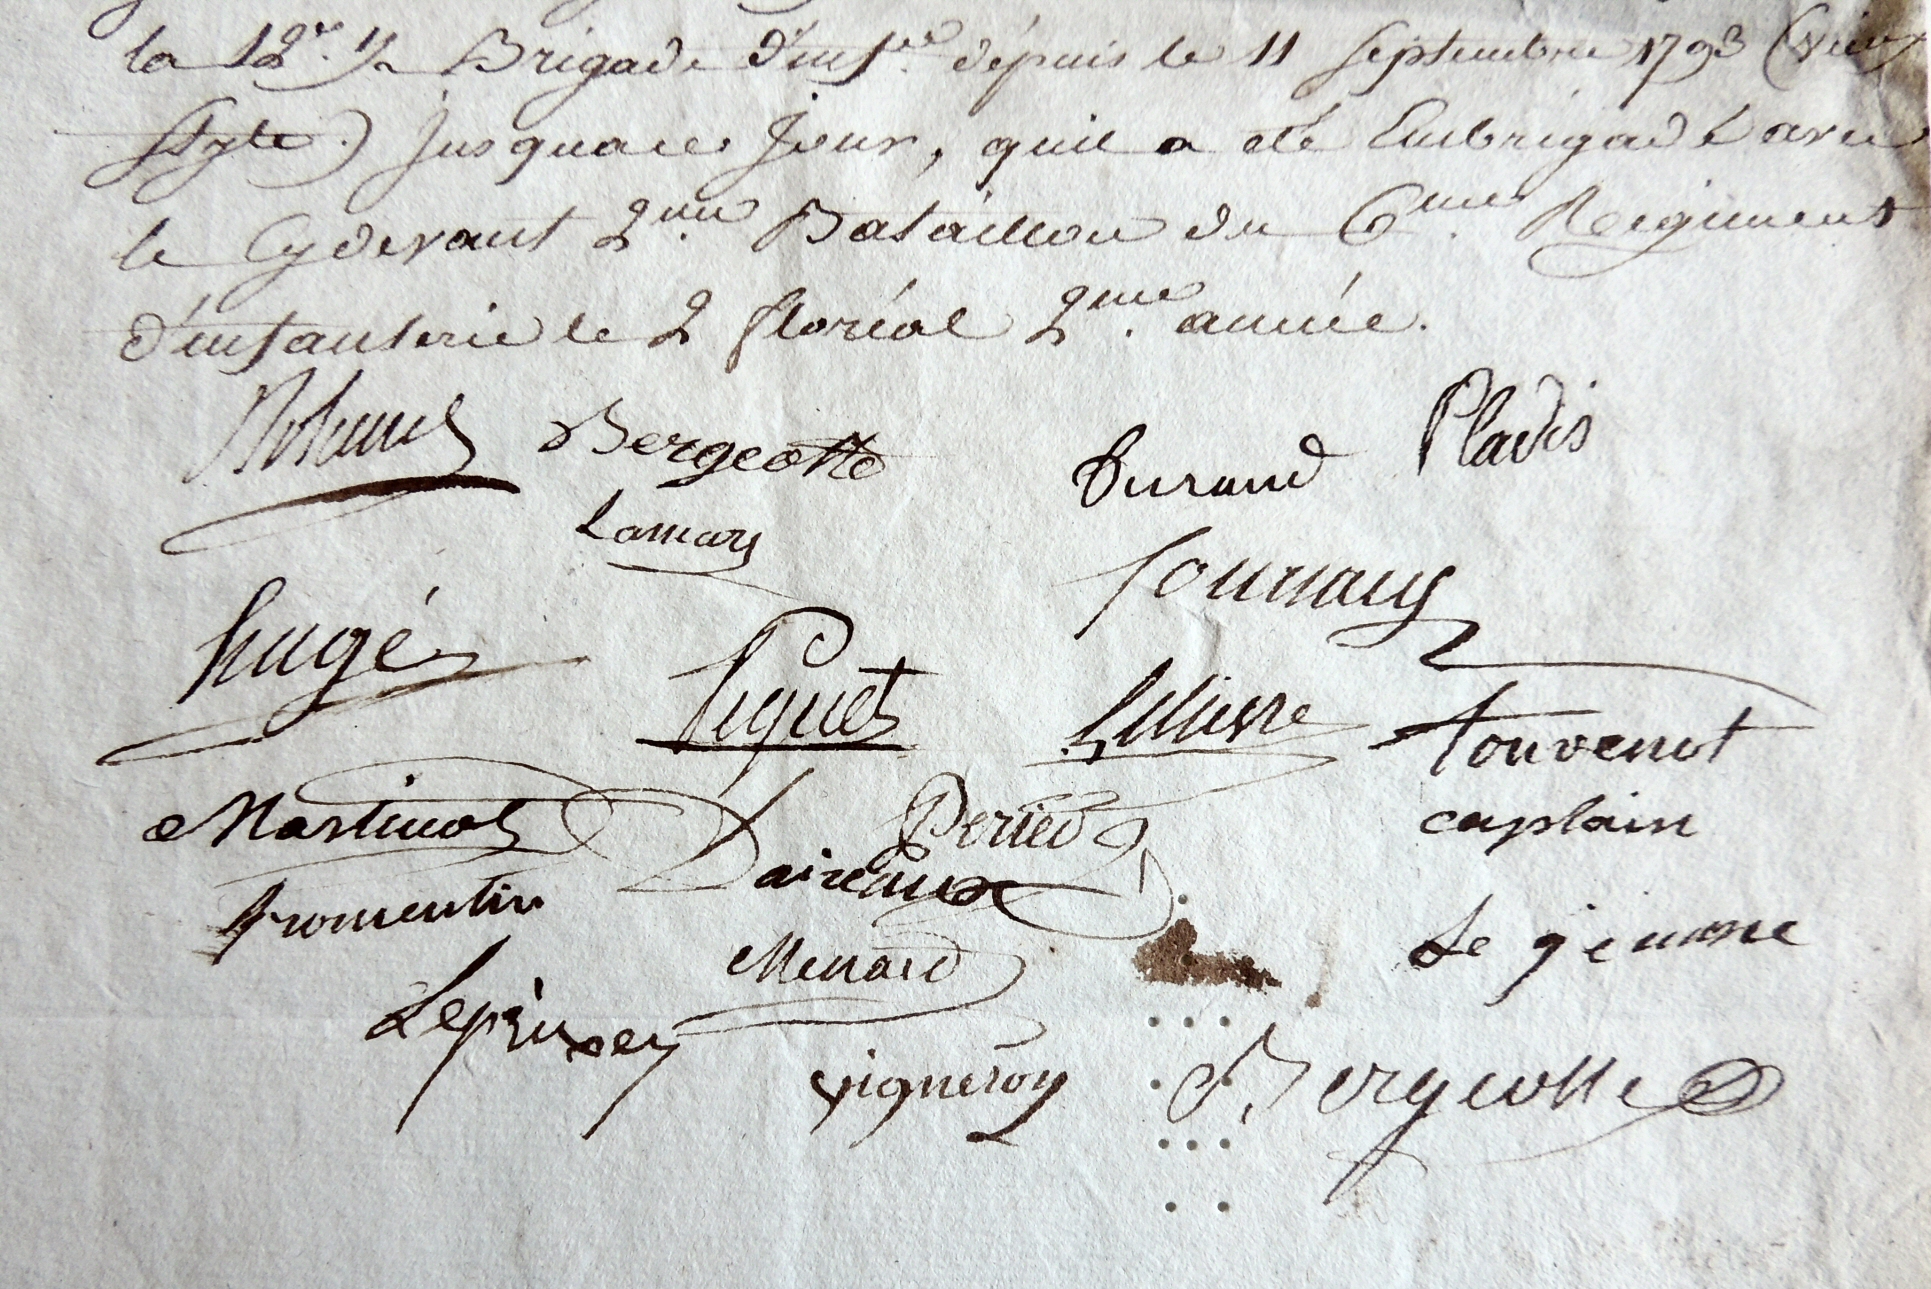 la 12e. 1/2 Brigade d'inf.ie dépuis le 11 Septembre 1793 (vieux
Style.) jusqu'a ce Jour, quil a été Embrigadé avec
le Cydevant 2.eme Bataillon du 6.eme Regiment
d'infanterie le 2 floréal 2.eme année.
Bergeotte Durand Pladis
Lamary
hugé
Piquet
Touvenot
Martinot Peried caplain
Daireaux
fromentin
Menard
Vigneron Bergeotte